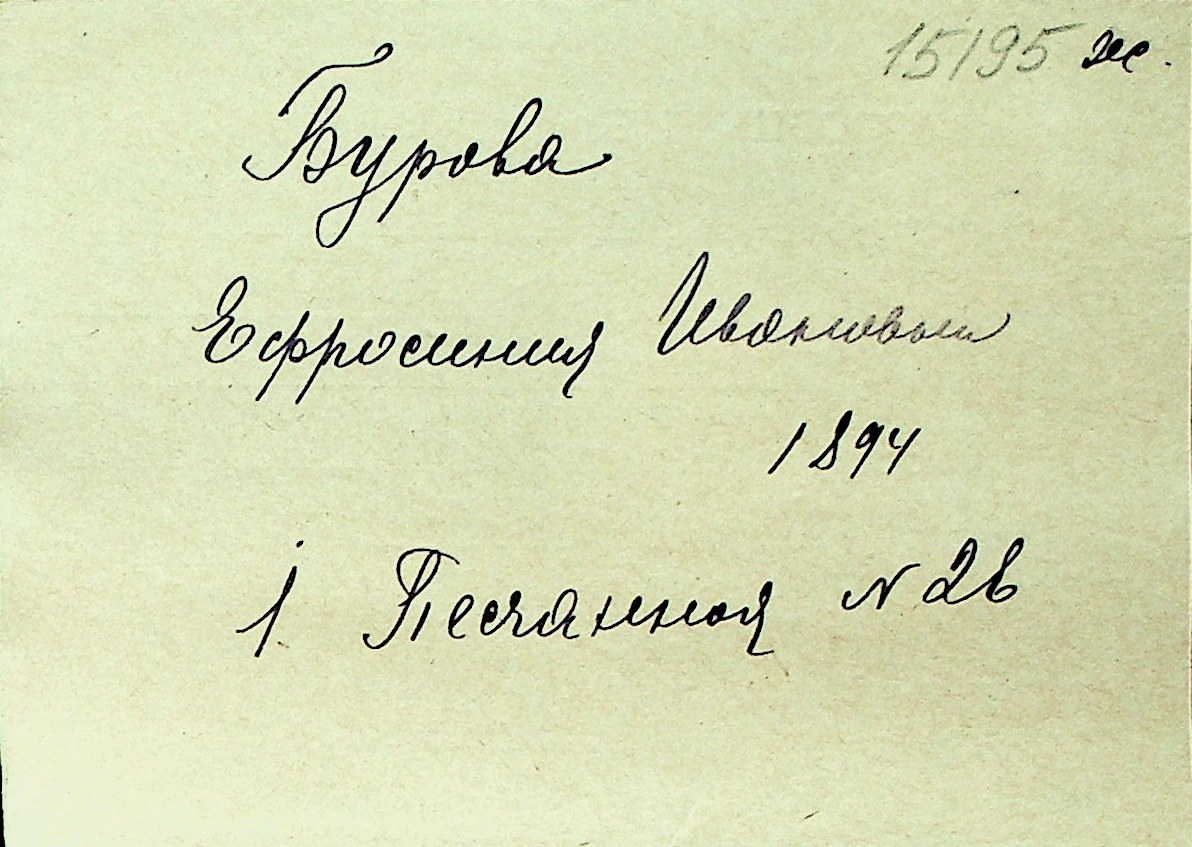 15195 ж.
Бурова
Ефросиния Ивановна
1894
1 Песчанная N 26